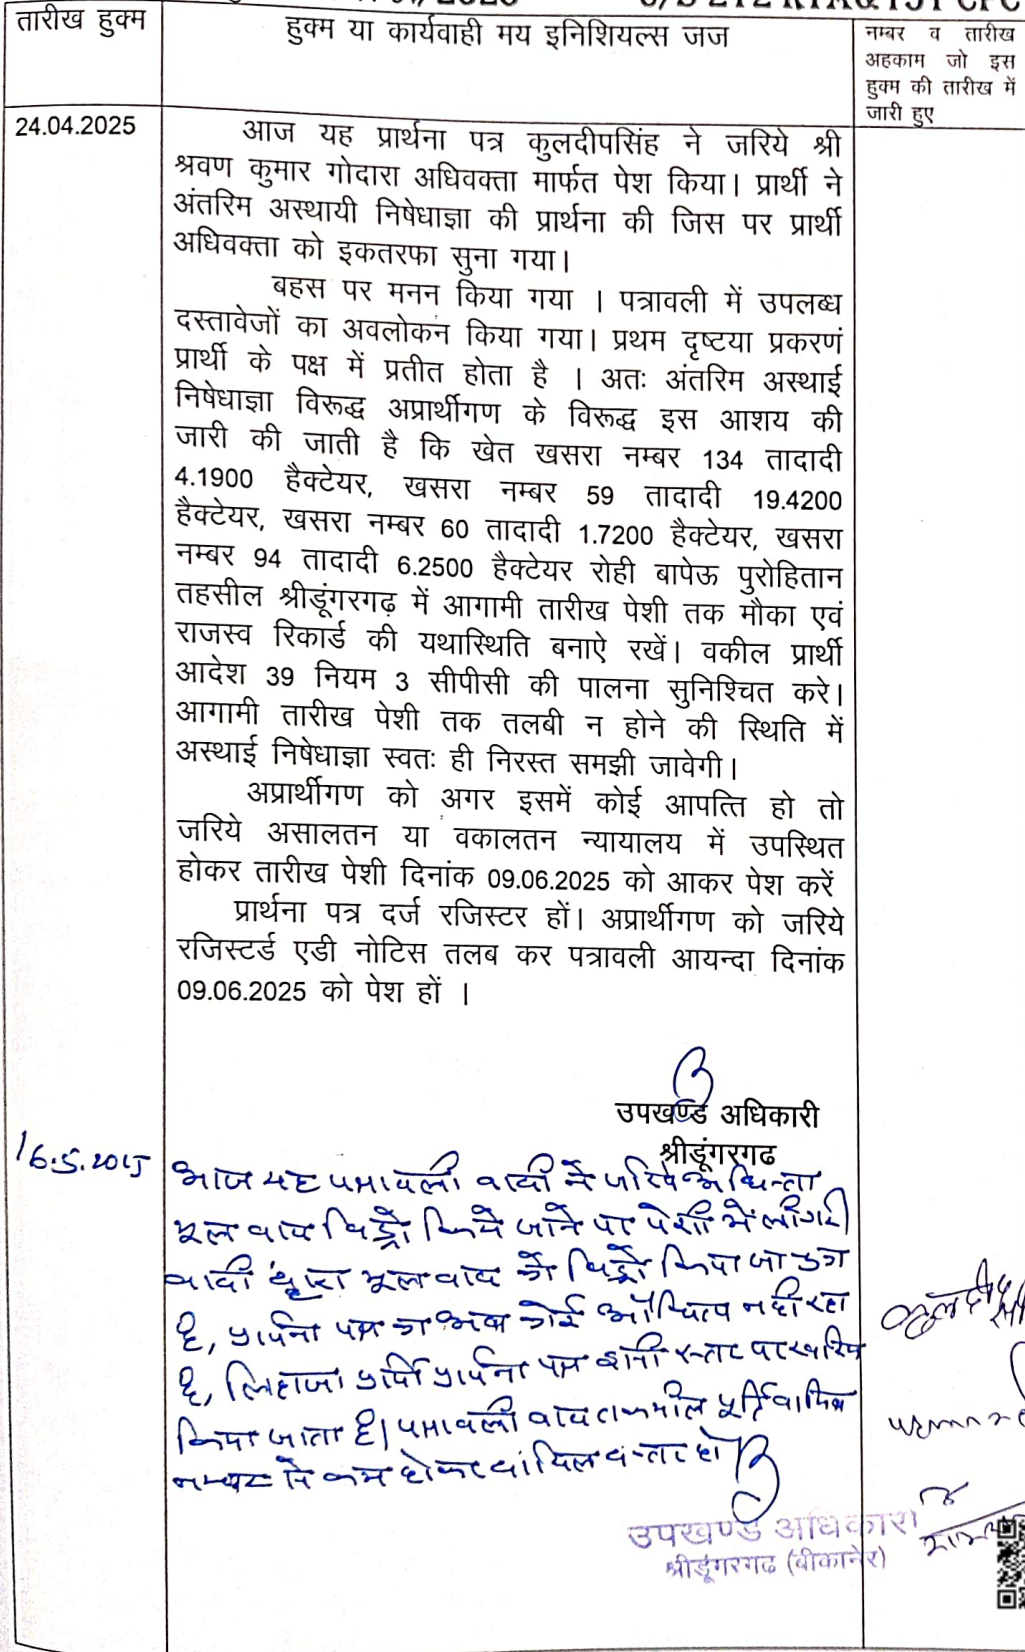 /2025 U/S 212 RTA & 151 CPC
तारीख हुक्म
हुक्म या कार्यवाही मय इनिशियल्स जज
नम्बर व तारीख
अहकाम जो इस
हुक्म की तारीख में
जारी हुए
24.04.2025
आज यह प्रार्थना पत्र कुलदीपसिंह ने जरिये श्री
श्रवण कुमार गोदारा अधिवक्ता मार्फत पेश किया। प्रार्थी ने
अंतरिम अस्थायी निषेधाज्ञा की प्रार्थना की जिस पर प्रार्थी
अधिवक्ता को इकतरफा सुना गया।
बहस पर मनन किया गया । पत्रावली में उपलब्ध
दस्तावेजों का अवलोकन किया गया। प्रथम दृष्टया प्रकरणं
प्रार्थी के पक्ष में प्रतीत होता है । अतः अंतरिम अस्थाई
निषेधाज्ञा विरूद्ध अप्रार्थीगण के विरूद्ध इस आशय की
जारी की जाती है कि खेत खसरा नम्बर 134 तादादी
4.1900 हैक्टेयर, खसरा नम्बर 59 तादादी 19.4200
हैक्टेयर, खसरा नम्बर 60 तादादी 1.7200 हैक्टेयर, खसरा
नम्बर 94 तादादी 6.2500 हैक्टेयर रोही बापेऊ पुरोहितान
तहसील श्रीडूंगरगढ़ में आगामी तारीख पेशी तक मौका एवं
राजस्व रिकार्ड की यथास्थिति बनाऐ रखें। वकील प्रार्थी
आदेश 39 नियम 3 सीपीसी की पालना सुनिश्चित करे।
आगामी तारीख पेशी तक तलबी न होने की स्थिति में
अस्थाई निषेधाज्ञा स्वतः ही निरस्त समझी जावेगी।
अप्रार्थीगण को अगर इसमें कोई आपत्ति हो तो
जरिये असालतन या वकालतन न्यायालय में उपस्थित
होकर तारीख पेशी दिनांक 09.06.2025 को आकर पेश करें
प्रार्थना पत्र दर्ज रजिस्टर हों। अप्रार्थीगण को जरिये
रजिस्टर्ड एडी नोटिस तलब कर पत्रावली आयन्दा दिनांक
09.06.2025 को पेश हों ।
उपखण्ड अधिकारी
श्रीडूंगरगढ
16.5.2025
आज यह पत्रावली वादी ने जरिये अधिवक्ता
मूल वाद विड्रो किये जाने पर पेशी में ली गई।
वादी द्वारा मूल वाद को विड्रो किया जा चुका
है, प्रार्थना पत्र का अब कोई औचित्य नही रहा
है, लिहाजा प्रार्थी प्रार्थना पत्र इसी स्तर पर खारिज
किया जाता है। पत्रावली बाद तकमील पूर्ति दाखिल
नम्बर से कम होकर दाखिल दफ्तर हो
उपखण्ड अधिकारी
श्रीडूंगरगढ (बीकानेर)